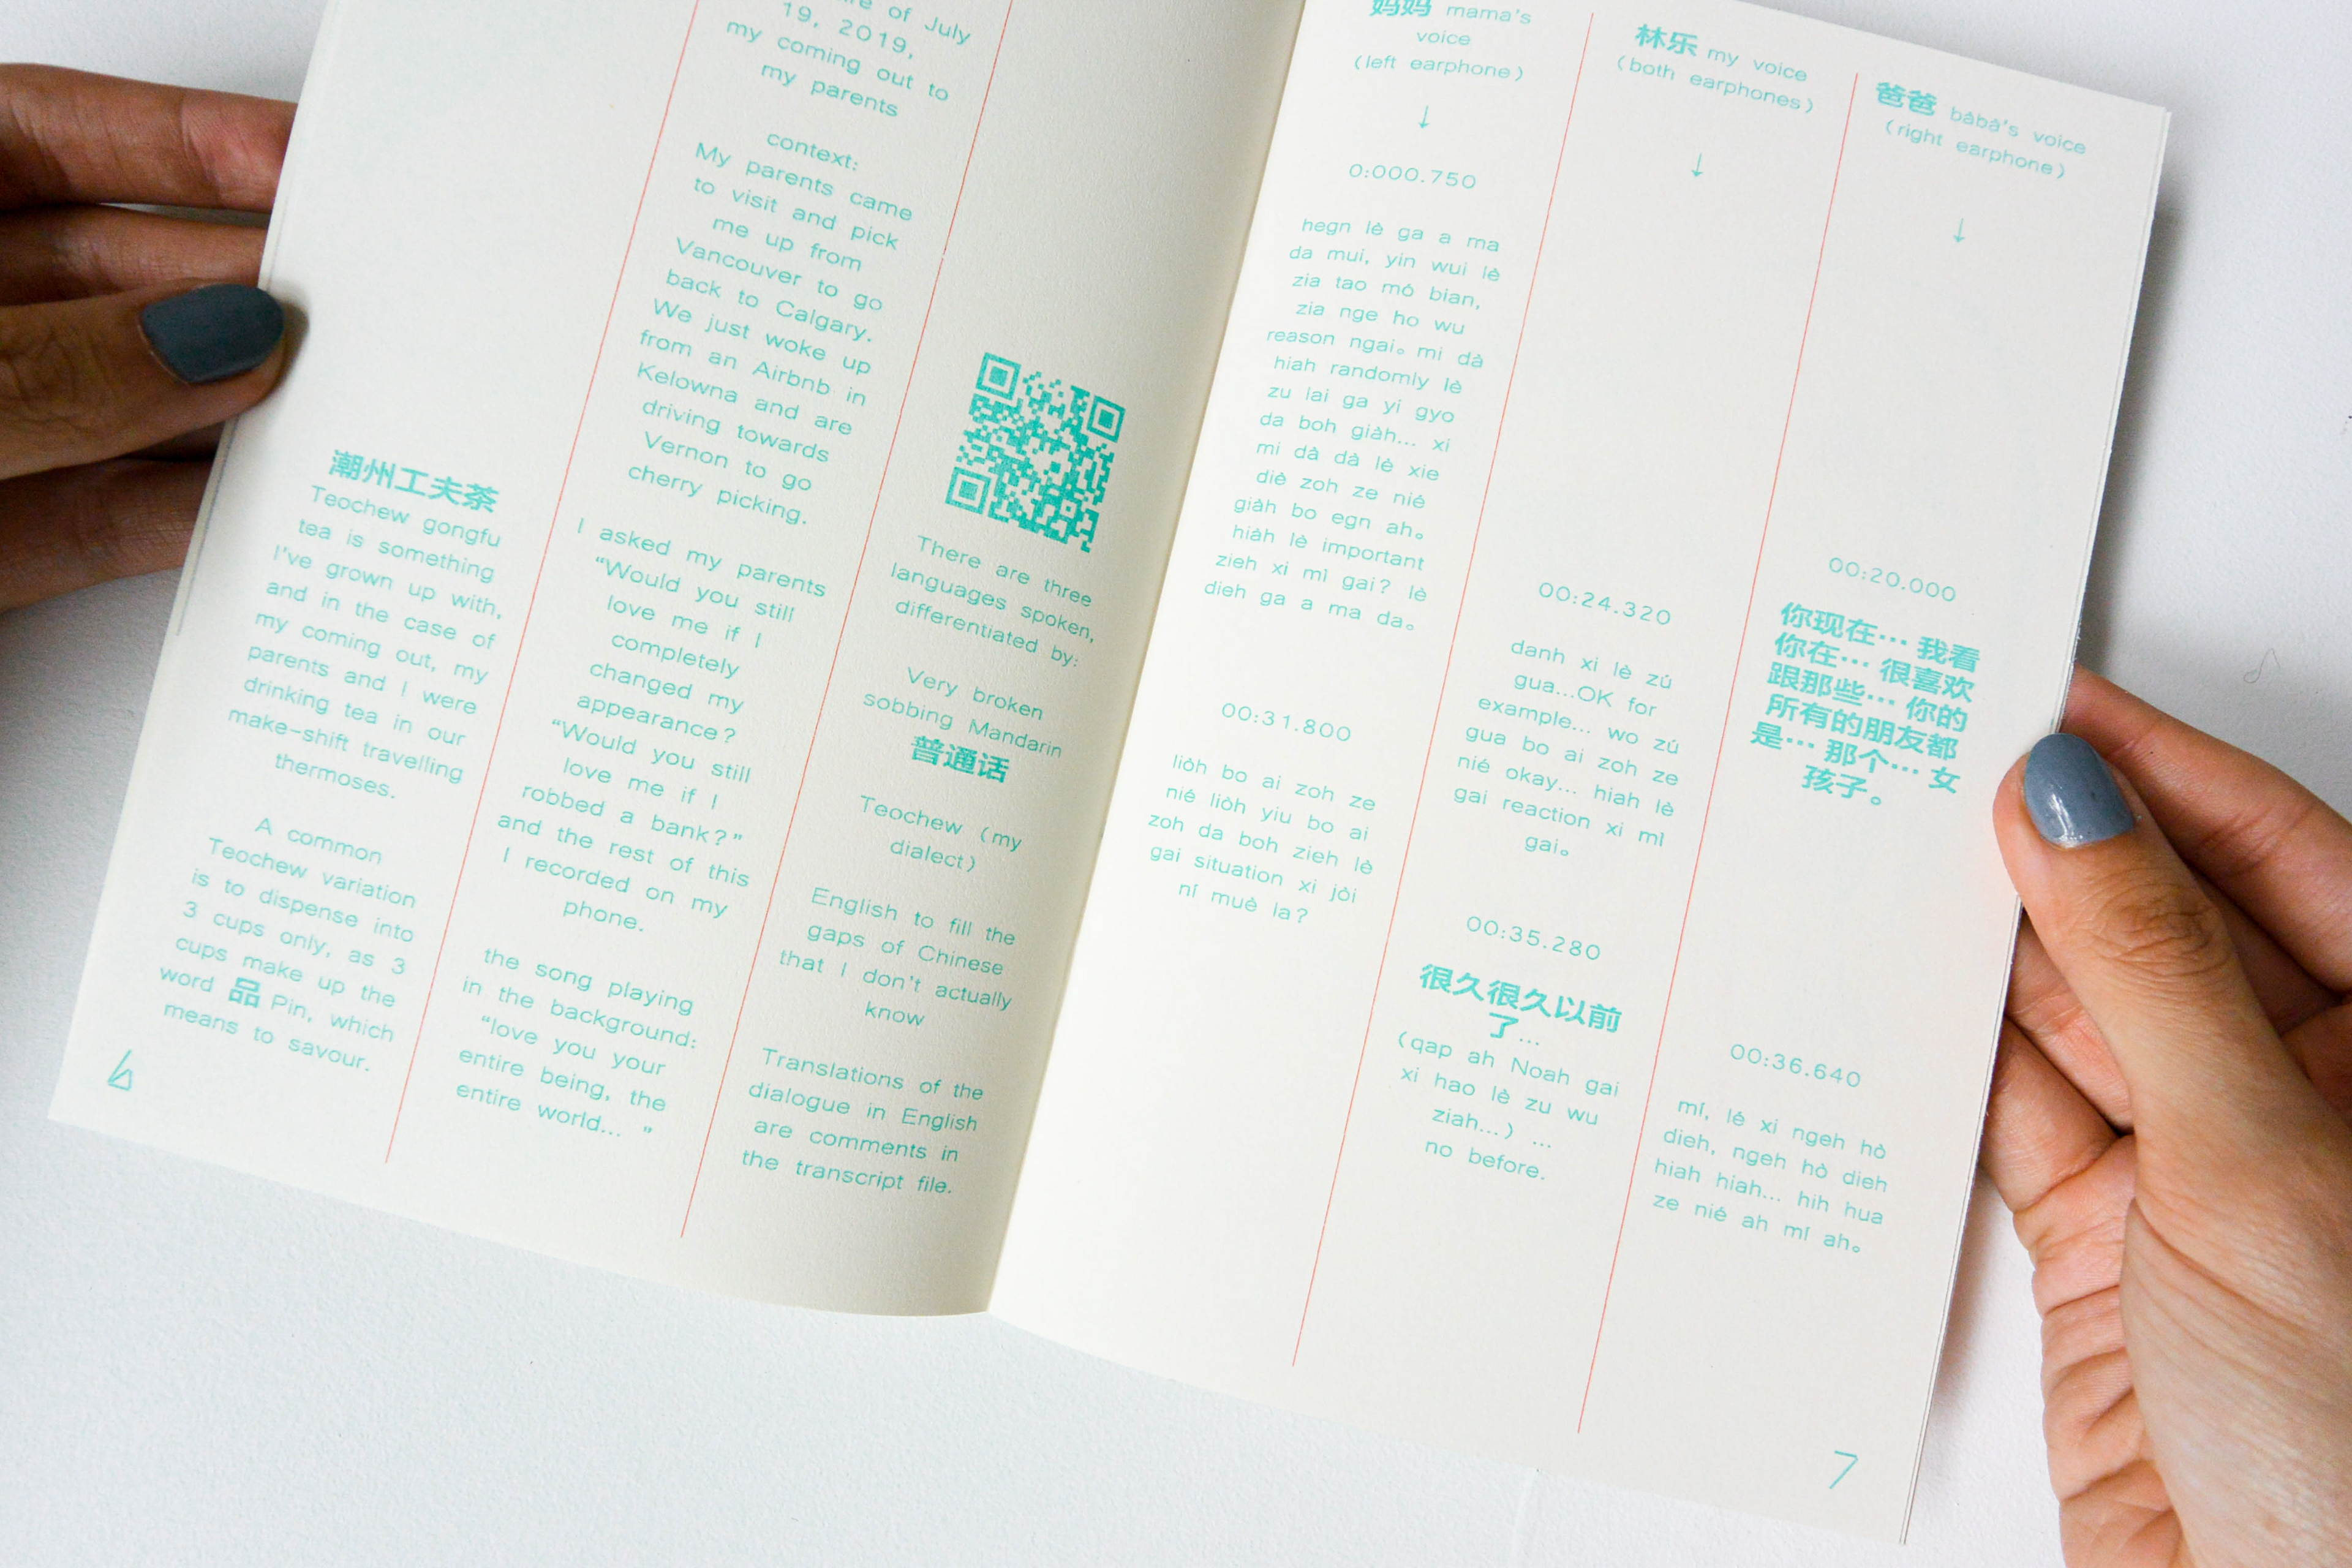 潮州工夫茶
Teochew gongfu
tea is something
I've grown up with,
and in the case of
my coming out, my
parents and I were
drinking tea in our
make-shift travelling
thermoses.
A common
Teochew variation
is to dispense into
3 cups only, as 3
cups make up the
word 品 Pin, which
means to savour.
6
of July
19, 2019,
my coming out to
my parents
context:
My parents came
to visit and pick
me up from
Vancouver to go
back to Calgary.
We just woke up
from an Airbnb in
Kelowna and are
driving towards
Vernon to go
cherry picking.
I asked my parents
“Would you still
love me if I
completely
changed my
appearance?
“Would you still
love me if I
robbed a bank?”
and the rest of this
I recorded on my
phone.
the song playing
in the background:
“love you your
entire being, the
entire world... ”
There are three
languages spoken,
differentiated by:
Very broken
sobbing Mandarin
普通话
Teochew (my
dialect)
English to fill the
gaps of Chinese
that I don't actually
know
Translations of the
dialogue in English
are comments in
the transcript file.
妈妈 mama's
voice
(left earphone)
↓
0:000.750
hegn lè ga a ma
da mui, yin wui lè
zia tao mó bian,
zia nge ho wu
reason ngai。 mi dà
hiah randomly lè
zu lai ga yi gyo
da boh giàh... xi
mi dà dà lè xie
diè zoh ze nié
giàh bo egn ah。
hiàh lè important
zieh xi mī gai? lè
dieh ga a ma da。
00:31.800
liòh bo ai zoh ze
nié liòh yiu bo ai
zoh da boh zieh lè
gai situation xi jòi
ní muè la?
林乐 my voice
(both earphones)
↓
00:24.320
danh xi lè zú
gua...OK for
example... wo zú
gua bo ai zoh ze
nié okay... hiah lè
gai reaction xi mī
gai。
00:35.280
很久很久以前
了...
(qap ah Noah gai
xi hao lè zu wu
ziah...) ...
no before.
爸爸 bàba's voice
(right earphone)
↓
00:20.000
你现在… 我看
你在… 很喜欢
跟那些… 你的
所有的朋友都
是… 那个… 女
孩子。
00:36.640
mí, lé xi ngeh hò
dieh, ngeh hò dieh
hiah hiah... hih hua
ze nié ah mí ah。
7